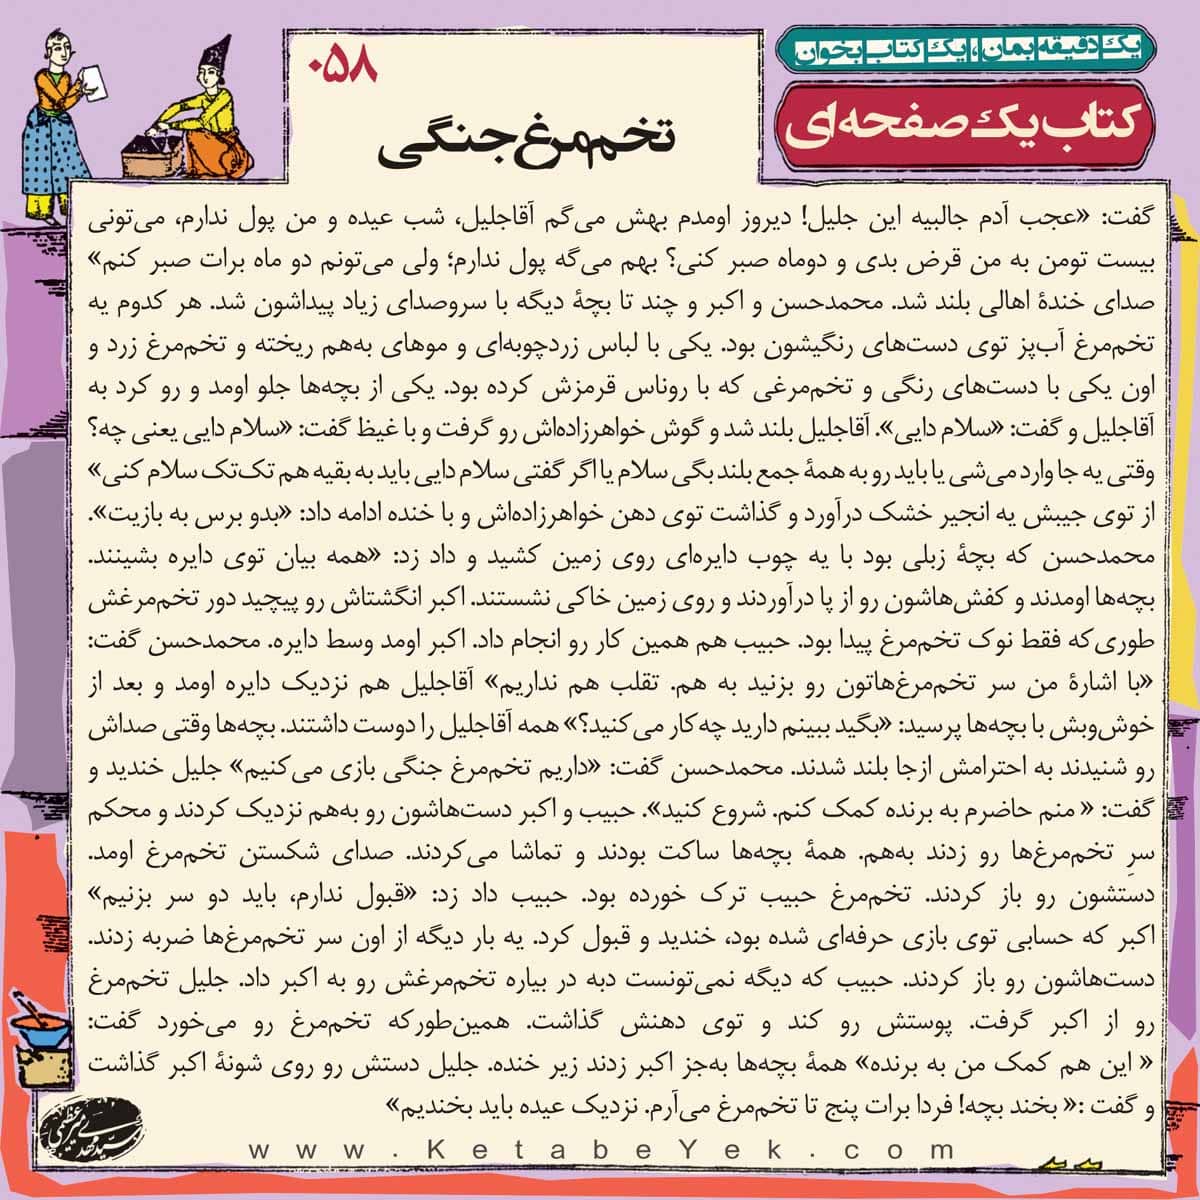 یک دقیقه بمان، یک کتاب بخوان
کتاب یک صفحه‌ای
۰۵۸
تخم‌مرغ جنگی
گفت: «عجب آدم جالبیه این جلیل! دیروز اومدم بهش می‌گم آقاجلیل، شب عیده و من پول ندارم، می‌تونی
بیست تومن به من قرض بدی و دوماه صبر کنی؟ بهم می‌گه پول ندارم؛ ولی می‌تونم دو ماه برات صبر کنم»
صدای خندهٔ اهالی بلند شد. محمدحسن و اکبر و چند تا بچهٔ دیگه با سروصدای زیاد پیداشون شد. هر کدوم یه
تخم‌مرغ آب‌پز توی دست‌های رنگیشون بود. یکی با لباس زردچوبه‌ای و موهای به‌هم ریخته و تخم‌مرغ زرد و
اون یکی با دست‌های رنگی و تخم‌مرغی که با روناس قرمزش کرده بود. یکی از بچه‌ها جلو اومد و رو کرد به
آقاجلیل و گفت: «سلام دایی». آقاجلیل بلند شد و گوش خواهرزاده‌اش رو گرفت و با غیظ گفت: «سلام دایی یعنی چه؟
وقتی یه جا وارد می‌شی یا باید رو به همهٔ جمع بلند بگی سلام یا اگر گفتی سلام دایی باید به بقیه هم تک‌تک سلام کنی»
از توی جیبش یه انجیر خشک درآورد و گذاشت توی دهن خواهرزاده‌اش و با خنده ادامه داد: «بدو برس به بازیت».
محمدحسن که بچهٔ زبلی بود با یه چوب دایره‌ای روی زمین کشید و داد زد: «همه بیان توی دایره بشینند.
بچه‌ها اومدند و کفش‌هاشون رو از پا درآوردند و روی زمین خاکی نشستند. اکبر انگشتاش رو پیچید دور تخم‌مرغش
طوری‌که فقط نوک تخم‌مرغ پیدا بود. حبیب هم همین کار رو انجام داد. اکبر اومد وسط دایره. محمدحسن گفت:
«با اشارهٔ من سر تخم‌مرغ‌هاتون رو بزنید به هم. تقلب هم نداریم» آقاجلیل هم نزدیک دایره اومد و بعد از
خوش‌وبش با بچه‌ها پرسید: «بگید ببینم دارید چه‌کار می‌کنید؟» همه آقاجلیل را دوست داشتند. بچه‌ها وقتی صداش
رو شنیدند به احترامش ازجا بلند شدند. محمدحسن گفت: «داریم تخم‌مرغ جنگی بازی می‌کنیم» جلیل خندید و
گفت: « منم حاضرم به برنده کمک کنم. شروع کنید». حبیب و اکبر دست‌هاشون رو به‌هم نزدیک کردند و محکم
سرِ تخم‌مرغ‌ها رو زدند به‌هم. همهٔ بچه‌ها ساکت بودند و تماشا می‌کردند. صدای شکستن تخم‌مرغ اومد.
دستشون رو باز کردند. تخم‌مرغ حبیب ترک خورده بود. حبیب داد زد: «قبول ندارم، باید دو سر بزنیم»
اکبر که حسابی توی بازی حرفه‌ای شده بود، خندید و قبول کرد. یه بار دیگه از اون سر تخم‌مرغ‌ها ضربه زدند.
دست‌هاشون رو باز کردند. حبیب که دیگه نمی‌تونست دبه در بیاره تخم‌مرغش رو به اکبر داد. جلیل تخم‌مرغ
رو از اکبر گرفت. پوستش رو کند و توی دهنش گذاشت. همین‌طورکه تخم‌مرغ رو می‌خورد گفت:
« این هم کمک من به برنده» همهٔ بچه‌ها به‌جز اکبر زدند زیر خنده. جلیل دستش رو روی شونهٔ اکبر گذاشت
و گفت :« بخند بچه! فردا برات پنج تا تخم‌مرغ می‌آرم. نزدیک عیده باید بخندیم»
www.KetabeYek.com